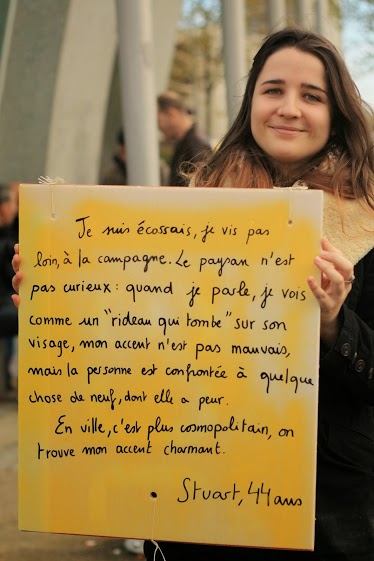 Je suis écossais, je vis pas
loin, à la campagne. Le paysan n'est
pas curieux : quand je parle, je vois
comme un "rideau qui tombe" sur son
visage, mon accent n'est pas mauvais,
mais la personne est confrontée à quelque
chose de neuf, dont elle a peur.
En ville, c'est plus cosmopolitain, on
trouve mon accent charmant.
Stuart, 44 ans